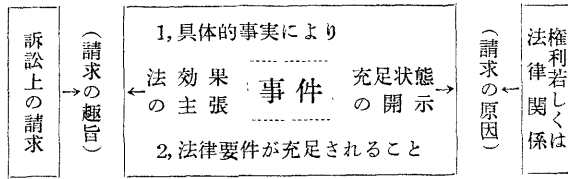 訴訟上の請求
→(請求の趣旨)←
1, 具体的事実により
法効果の主張
事件
充足状態の開示
2, 法律要件が充足されること
→(請求の原因)←
権利若しくは
法律関係